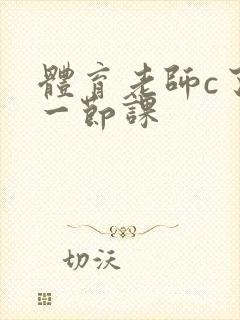 體育老師c了
一節課
切沃